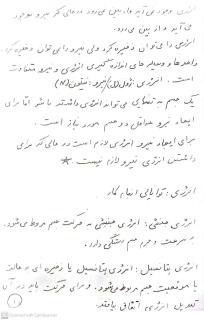 انرژی بوجود می آید و از بین می رود در حالی که نیرو بوجود
می آید و از بین می رود.
انرژی را می توان ذخیره کرد ولی نیرو را نمی توان ذخیره کرد.
واحدها و وسیله های اندازه گیری انرژی و نیرو متفاوت
است. انرژی: ژول (J) / نیرو: نیوتون (N)
یک جسم به تنهایی می تواند انرژی داشته باشد اما برای
ایجاد نیرو حداقل دو جسم مورد نیاز است.
برای ایجاد نیرو انرژی لازم است در حالی که برای
داشتن انرژی نیرو لازم نیست *
انرژی: توانایی انجام کار
انرژی جنبشی: انرژی جنبشی به حرکت جسم مربوط می شود.
به سرعت و جرم جسم بستگی دارد.
انرژی پتانسیل: انرژی پتانسیل یا ذخیره ای به حالت
یا موقعیت جسم مربوط می شود. و برای حرکت باید در آن
تبدیل انرژی اتفاق بیافتد.
1
CS Scanned with CamScanner